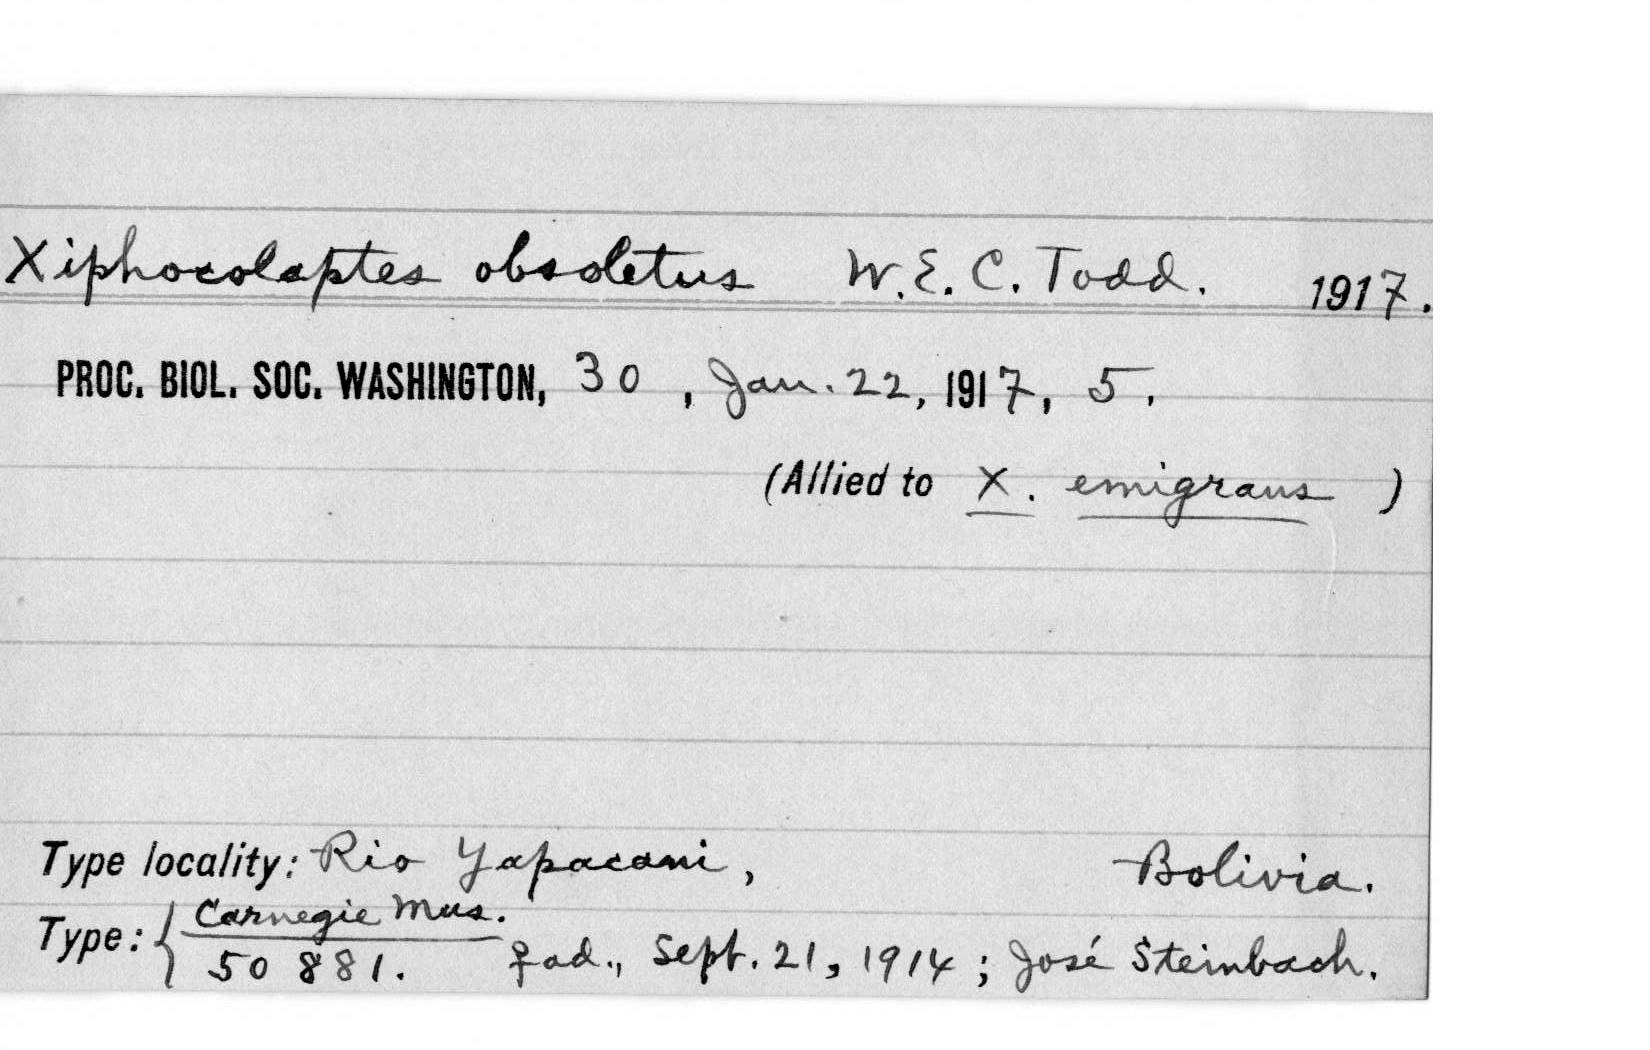 Xiphocolaptes obsoletus W.E.C. Todd. 1917.
PROC. BIOL. SOC. WASHINGTON, 30, Jan. 22, 1917, 5.
(Allied to X. emigrans)
Type locality: Rio Yapacani, Bolivia.
Type: { Carnegie Mus.
50 881. ♀ ad., Sept. 21, 1914; José Steinbach.